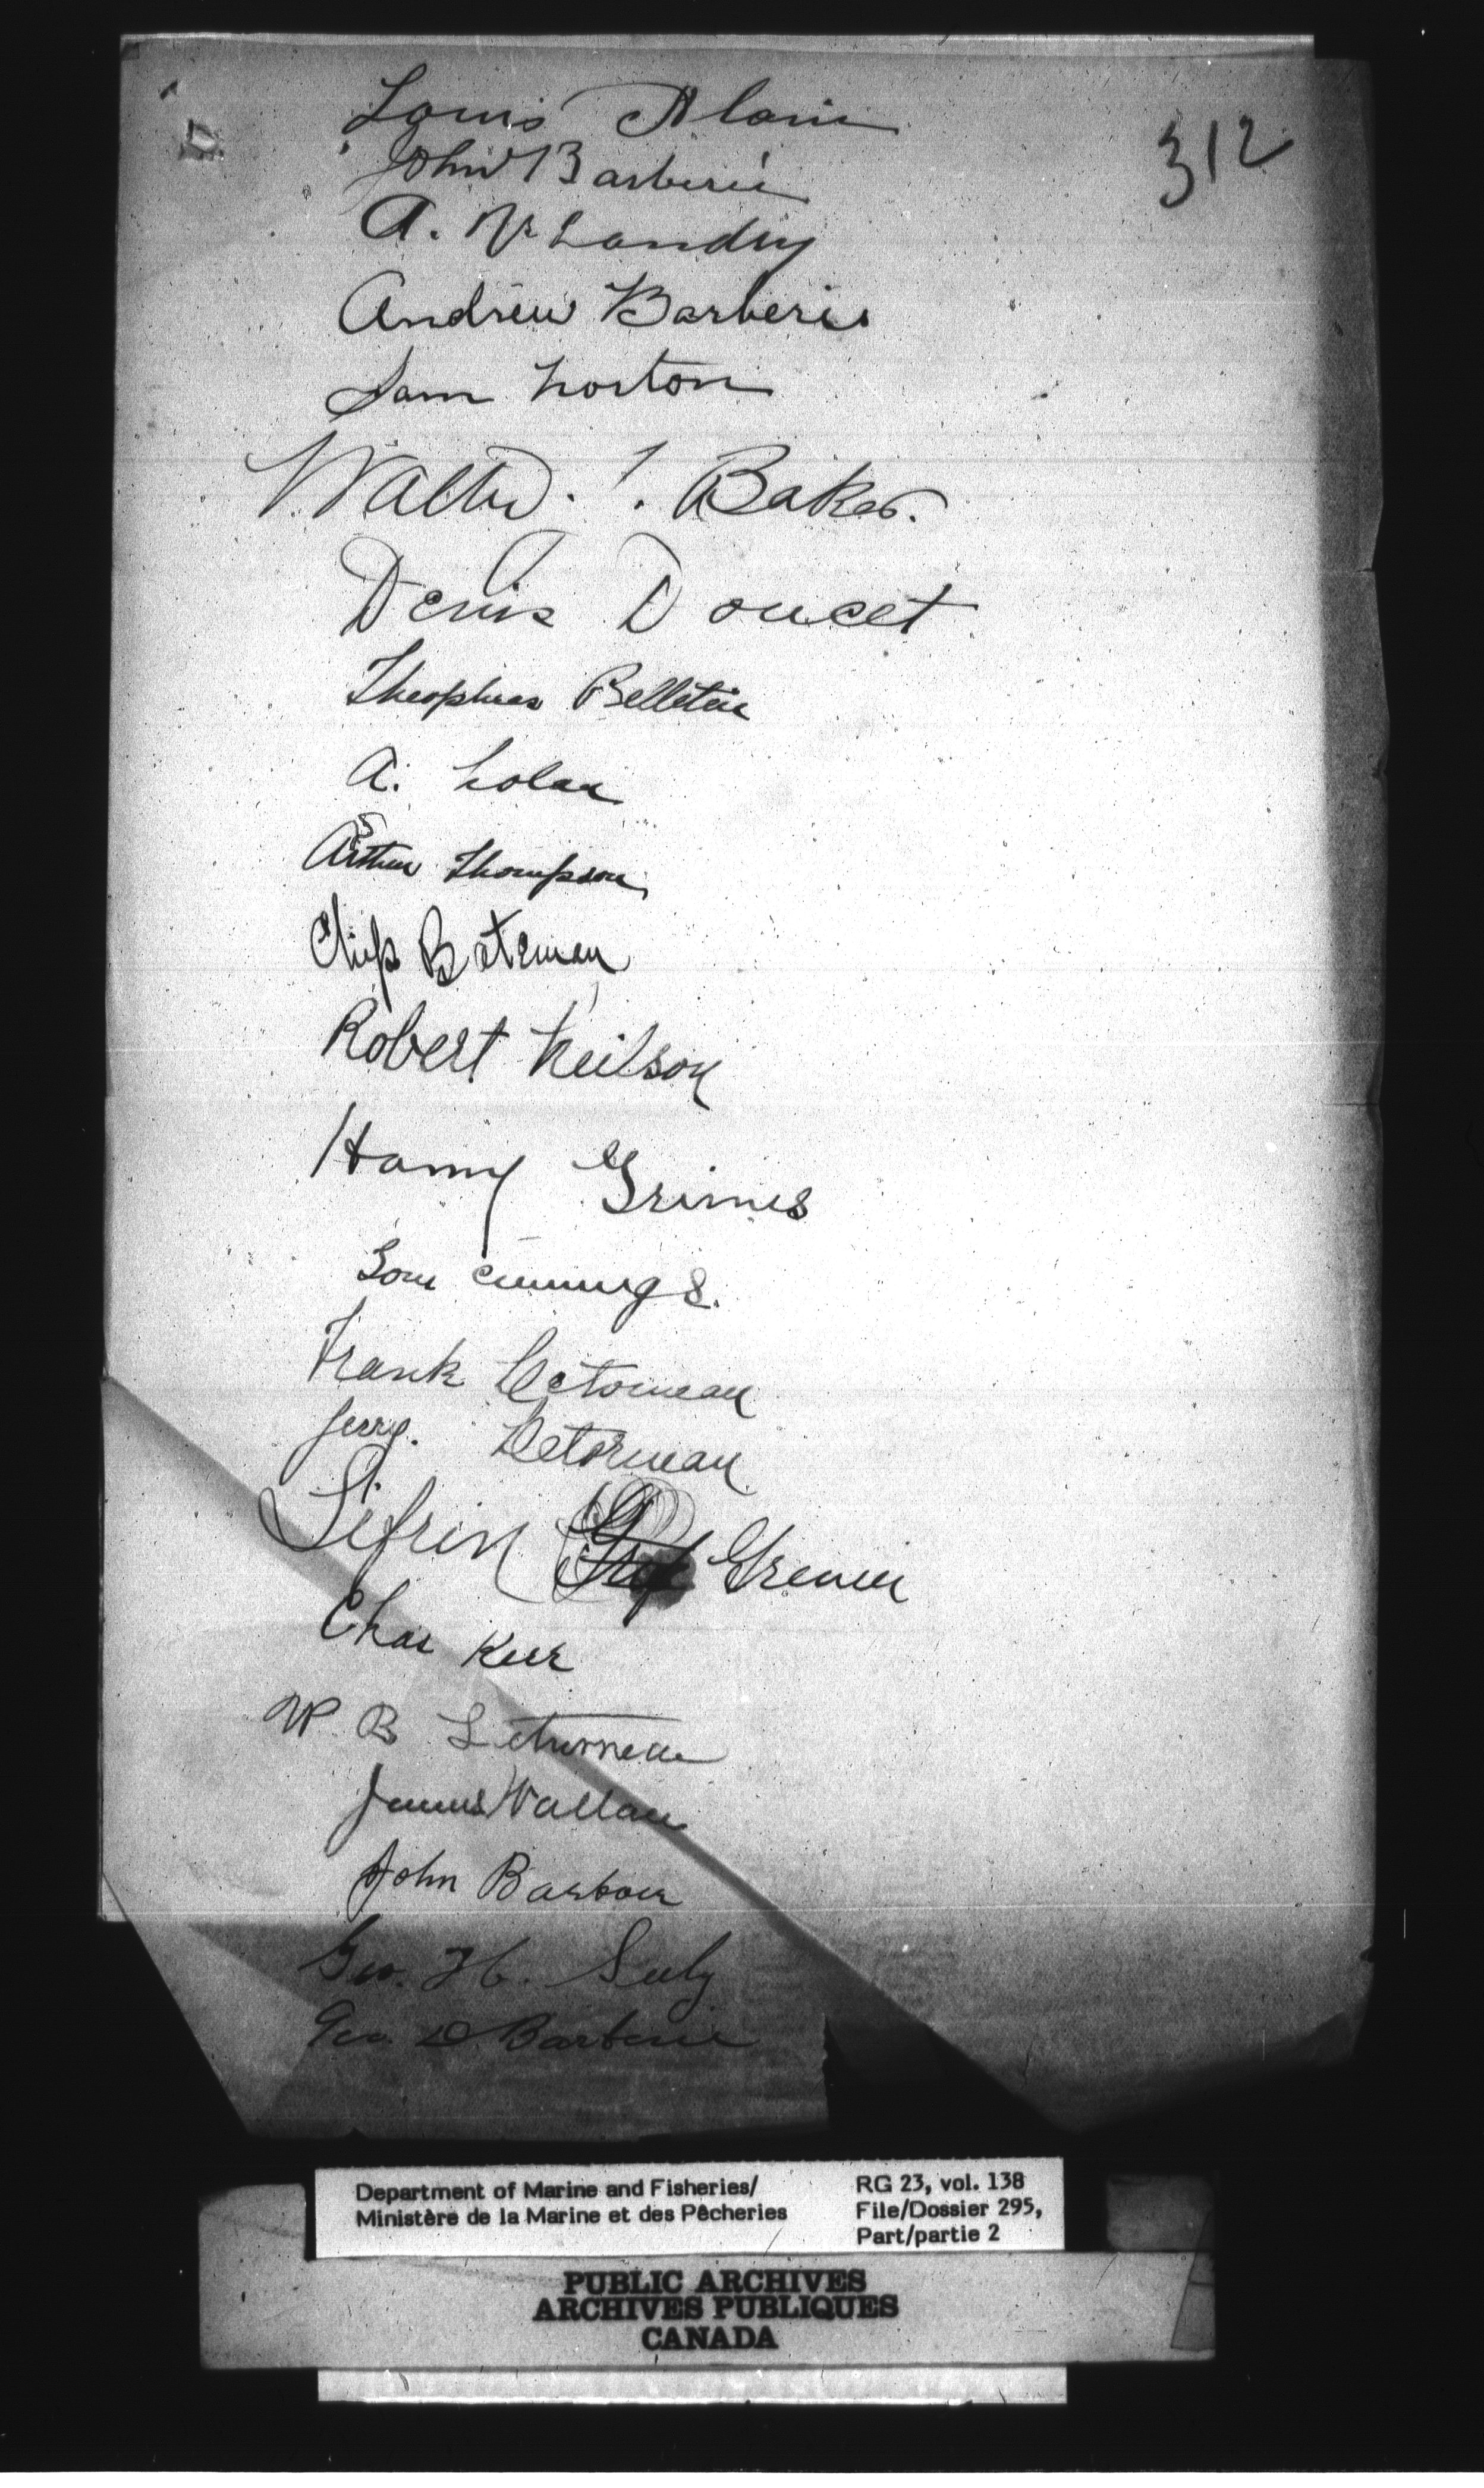 312
Louis Alain
John Barberie
A. Landry
Andrew Barberie
Sam horton
Walter. Baker.
Denis Doucet
Belletin
A.
Arthur Thompson
Bateman
Robert Neilson
Harry Grimes
Tom Cummings.
Frank Letorneau
Jerry. Letorneau
Sifrin Grenier
Chas Kerr
W. B Leturneau
James Wallace
John Barbour
Geo. H. Seely
Geo. D. Barberie
Department of Marine and Fisheries/
Ministère de la Marine et des Pêcheries
RG 23, vol. 138
File/Dossier 295,
Part/partie 2
PUBLIC ARCHIVES
ARCHIVES PUBLIQUES
CANADA